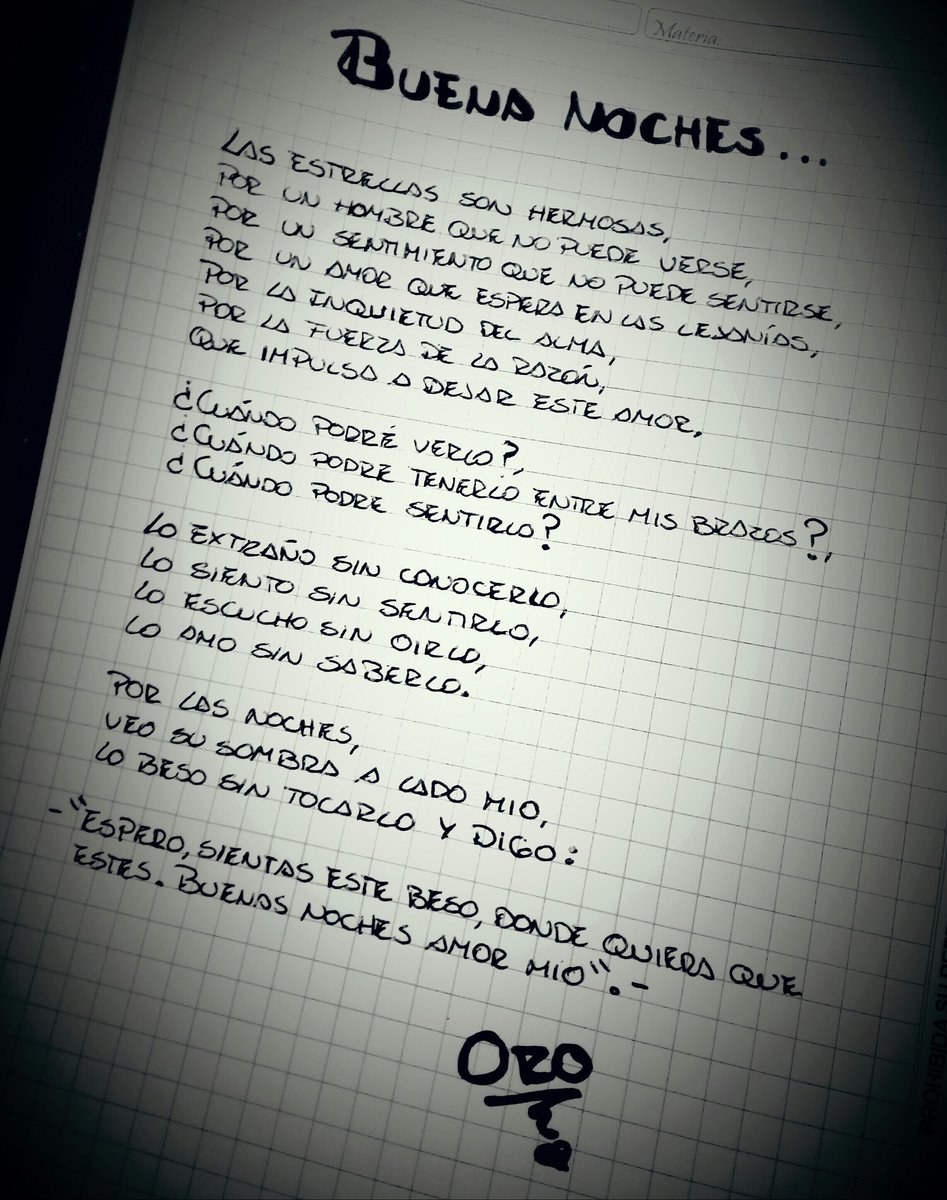 Materia:
BUENA NOCHES...
LAS ESTRELLAS SON HERMOSAS,
POR UN HOMBRE QUE NO PUEDE VERSE,
POR UN SENTIMIENTO QUE NO PUEDE SENTIRSE,
POR UN AMOR QUE ESPERA EN LAS LEJANÍAS,
POR LA INQUIETUD DEL ALMA,
POR LA FUERZA DE LA RAZÓN,
QUE IMPULSA A DEJAR ESTE AMOR.
¿CUÁNDO PODRÉ VERLO?,
¿CUÁNDO PODRE TENERLO ENTRE MIS BRAZOS?,
¿CUÁNDO PODRE SENTIRLO?
LO EXTRAÑO SIN CONOCERLO,
LO SIENTO SIN SENTIRLO,
LO ESCUCHO SIN OIRLO,
LO AMO SIN SABERLO.
POR LAS NOCHES,
VEO SU SOMBRA A LADO MIO,
LO BESO SIN TOCARLO Y DIGO:
-"ESPERO, SIENTAS ESTE BESO, DONDE QUIERA QUE
ESTES. BUENAS NOCHES AMOR MIO".-
ORO
PROHIBIDA SU